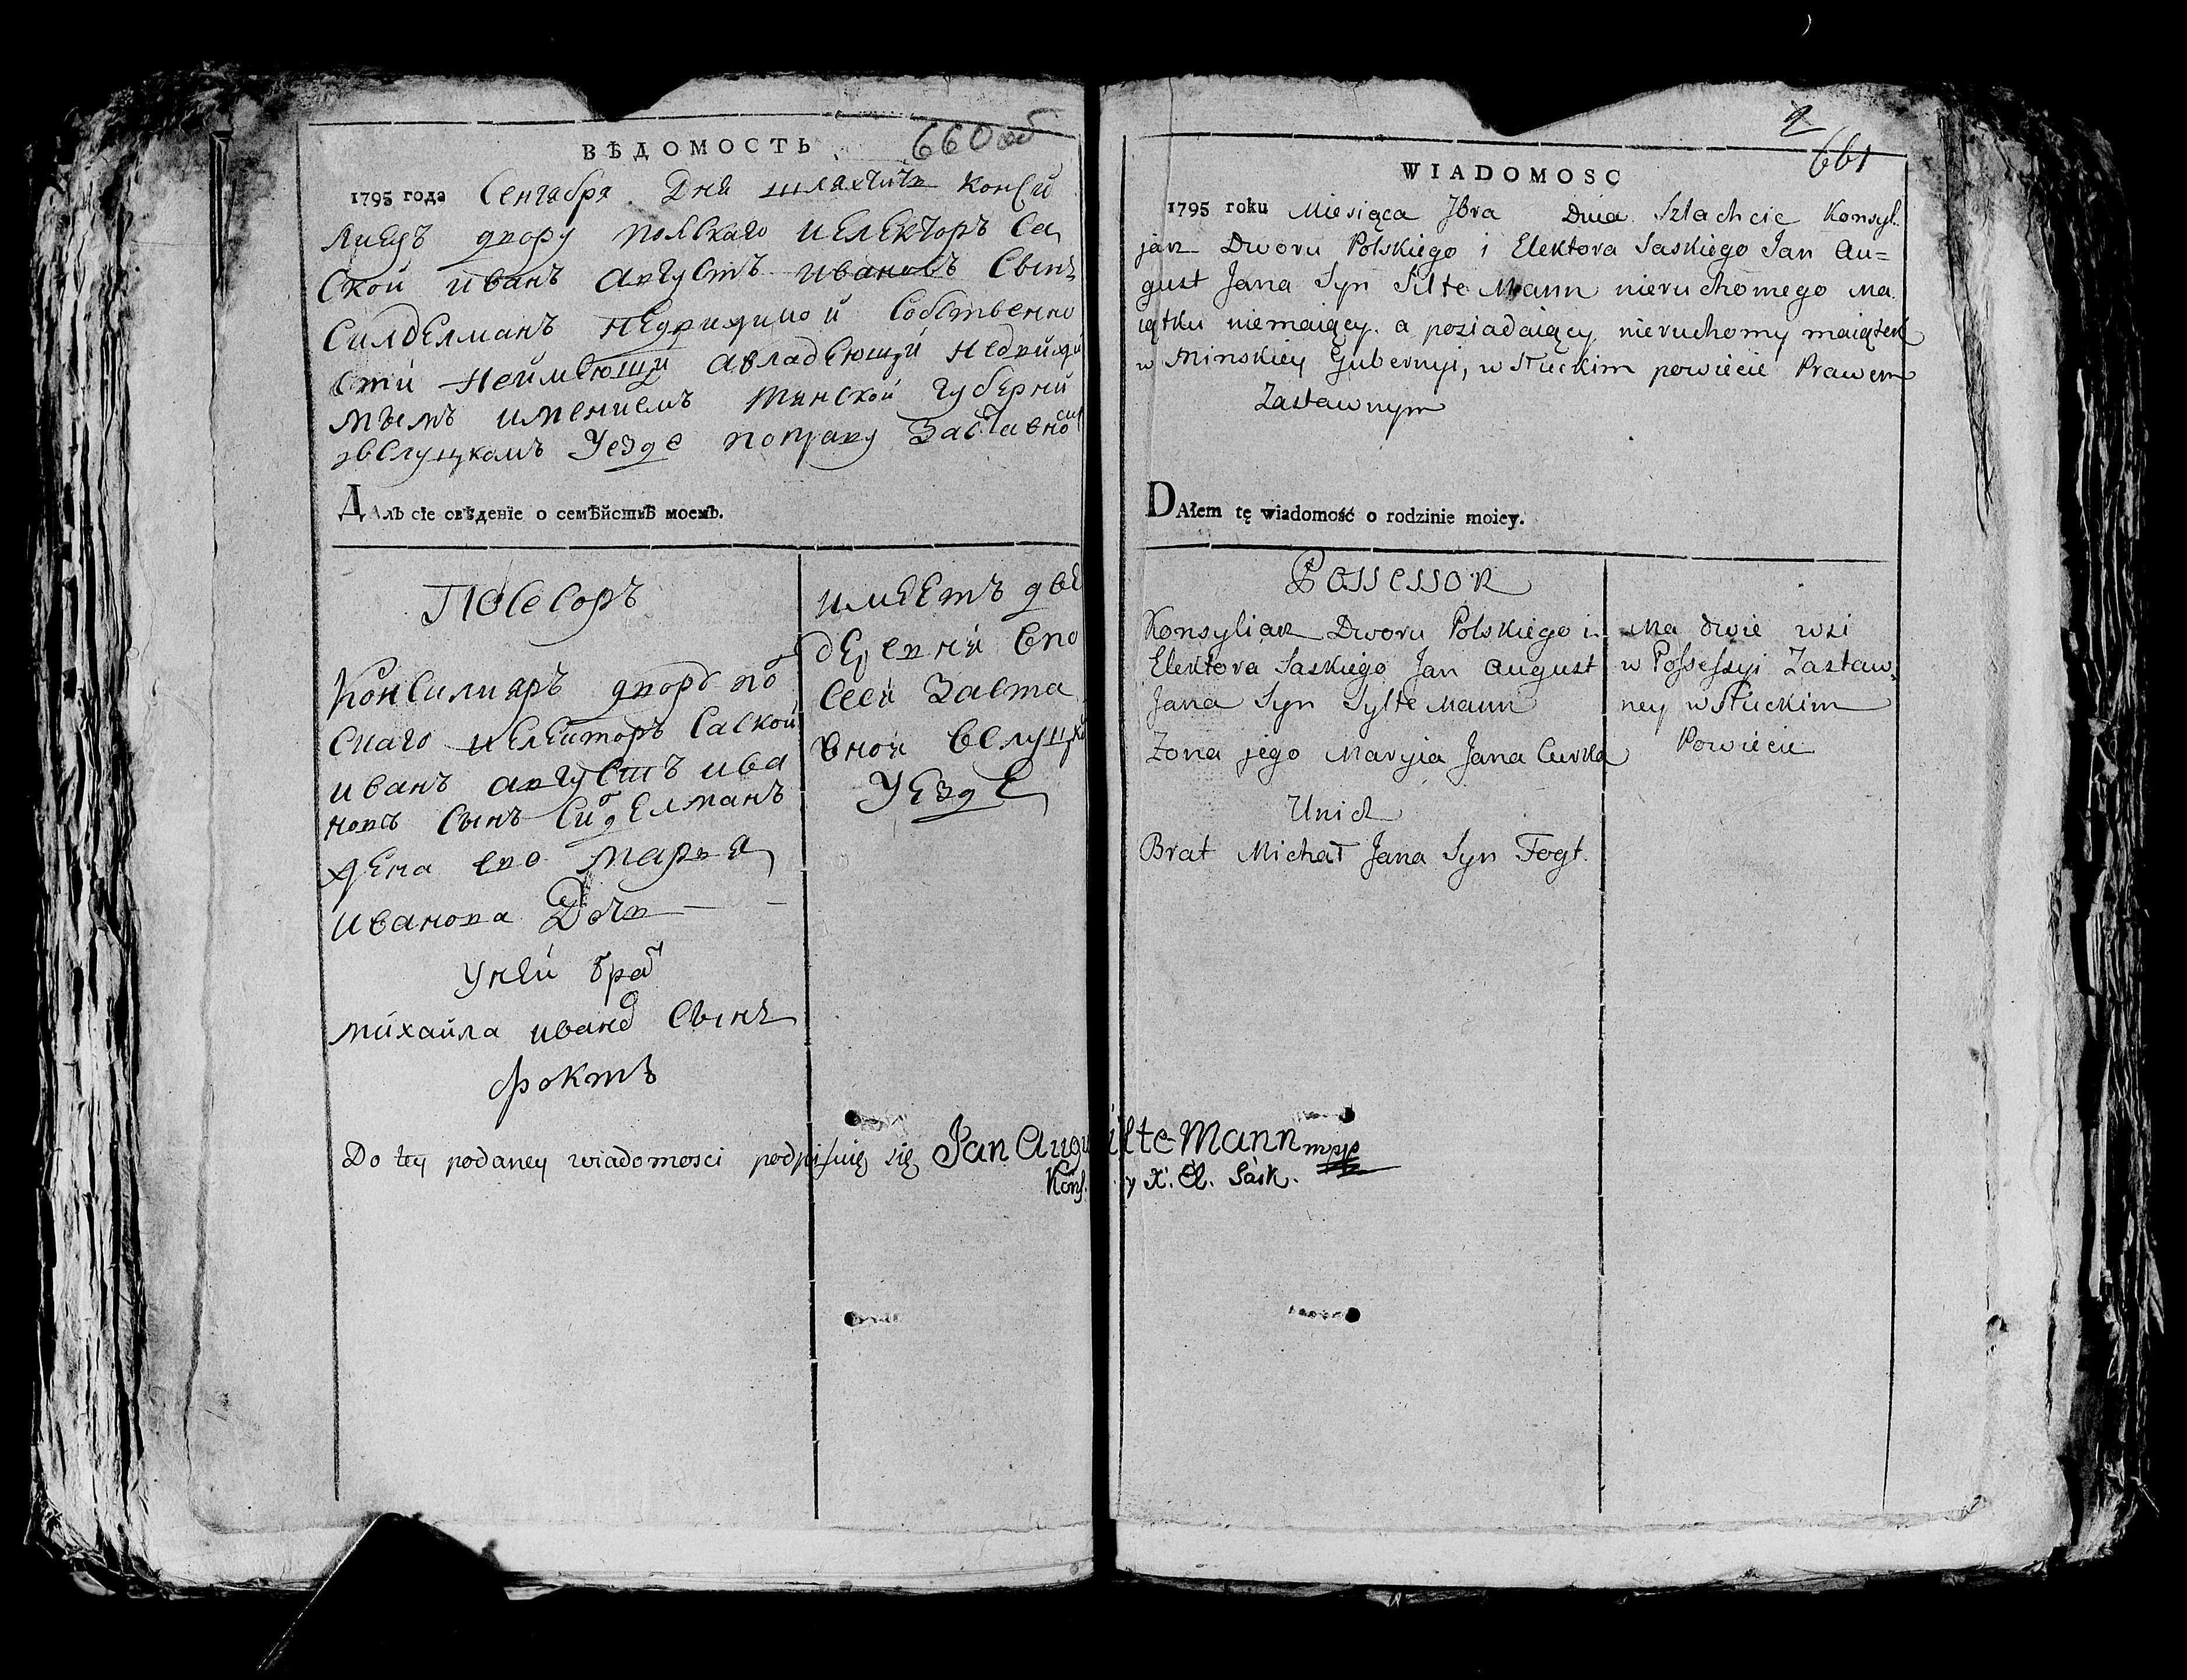 ВѢДОМОСТЬ 660 об
1795 года Сентабря Дня шляхтичь Консы
двору полскаго и електоръ Са
ской иванъ августъ ивановъ Сынъ
Силделманъ недвижимой Собственно
сти неймеющи авладеющй недвижи
мымъ имениемъ минской губерний
вслуцкомъ Уезде поправу Заставно
Далъ сіе свѣденіе о семѣйствѣ моемъ.
Посесоръ
Консилиаръ двора по
скаго и електоръ Саской
иванъ августъ ива
новъ Сынъ Силделманъ
жена ево Марья
иванова Дочь
Уней брат
михайла иванов Сынъ
фоктъ
имеетъ две
деревни впо
сеси Заста
вной вслуцко
Уезде
2
661
WIADOMOSC
1795 roku Miesiąca 7bra Dnia Szlachcic Konsyl.
jarz Dworu Polskiego i Elektora Saskiego Jan Au=
gust Jana Syn Silte Mann nieruchomego Ma
iątku niemaiący. a posiadaiący nieruchomy maiątek
w Minskiey Gubernyi, w Słuckim powiecie Prawem
Zastawnym
DAłem tę wiadomość o rodzinie moiey.
Possessor
Konsyliarz Dworu Polskiego i
Elektora Saskiego Jan August
Jana Syn Sylte Mann
Zona jego Maryia Jana Curka
Unich
Brat Michał Jana Syn Fogt.
Ma dwie wsi
w Possessyi Zastaw,
ney w Słuckim
Powiecie
Do tey podaney wiadomosci podpisuię się Jan Augu ilte Mann mpp
Kons. y X. El. Sask.